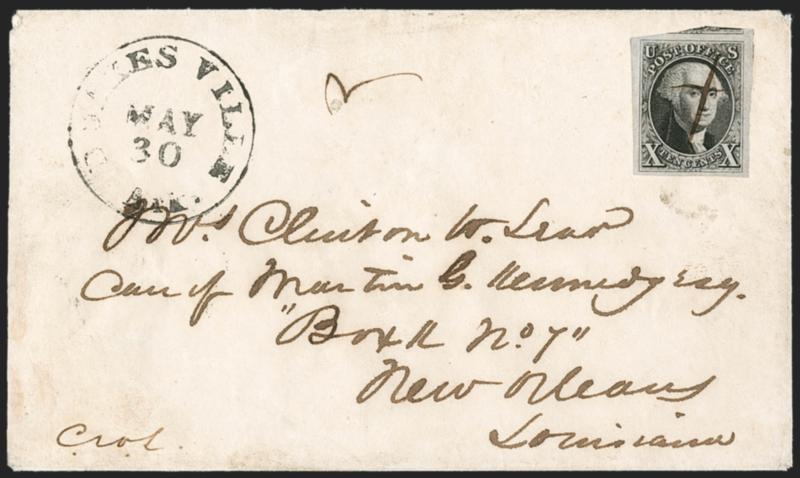 U S
POST OFFICE
X TEN CENTS X
VILLE
MAY
30
Ark.
Mrs Clinton W. Lear
Care of Martin G. Kennedy Esq.
"Box N° 7"
New Orleans
Louisiana